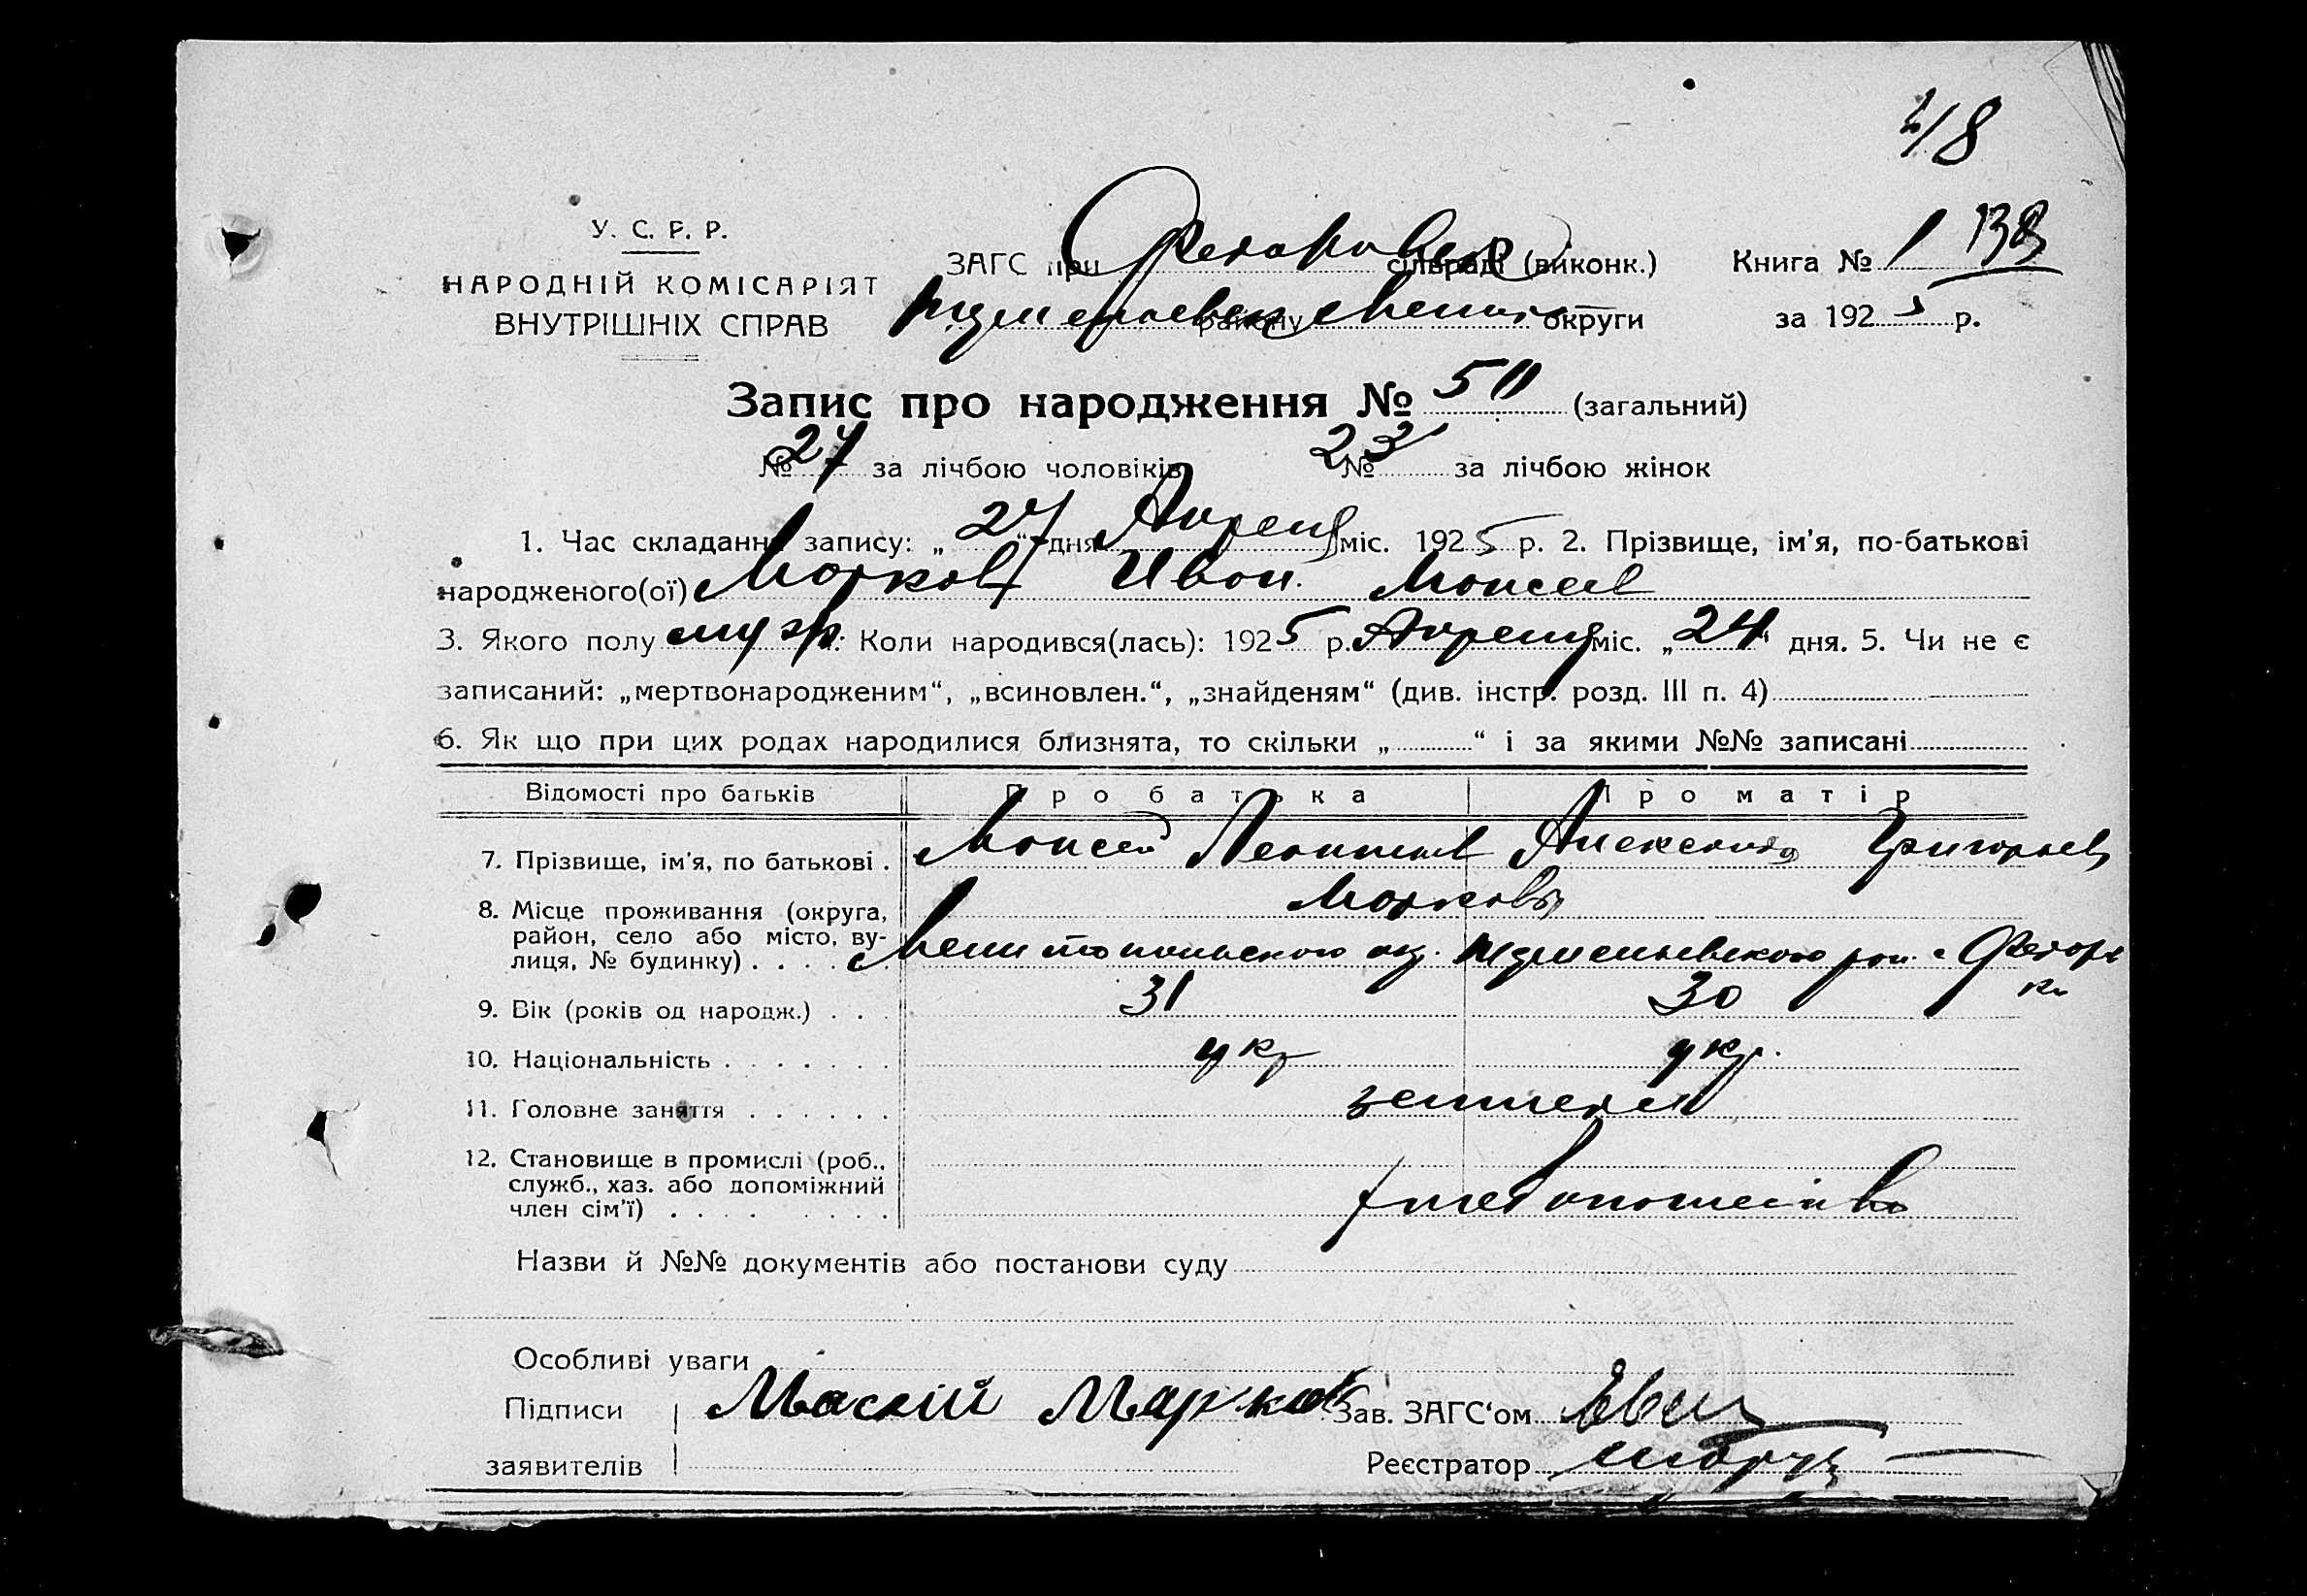 У. С. Р. Р.
НАРОДНІЙ КОМІСАРІЯТ
ВНУТРІШНІХ СПРАВ
ЗАГС при Федоровск сільраді (виконк.) Книга № 1 138
району округи за 1925 р.
Запис про народження № 50 (загальний)
№ 27 за лічбою чоловіків № 23 за лічбою жінок
1. Час складання запису: „27“ дня Апреля міс. 1925 р. 2. Прізвище, ім'я, по-батькові
народженого(ої) Марков Иван Моисеев
3. Якого полу муж. Коли народився(лась): 1925 р. Апреля міс. „24“ дня. 5. Чи не є
записаний: „мертвонародженим“, „всиновлен.“, „знайденям“ (див. інстр. розд. III п. 4)
6. Як що при цих родах народилися близнята, то скільки „ “ і за якими №№ записані
Відомості про батьків Про батька Про матір
7. Прізвище, ім'я, по батькові . Моисей Александра Григорьев
Марковы
8. Місце проживання (округа,
район, село або місто, ву-
лиця, № будинку) . . . . Мелитопольского окр. рай. с Федоров
ка
9. Вік (років од народж.) . . . 31 30
10. Національність . . . . . . . укр укр.
11. Головне заняття . . . . . . земледел
12. Становище в промислі (роб.,
служб., хаз. або допоміжний
член сім'ї) . . . . . . . . .
Назви й №№ документів або постанови суду
Особливі уваги
Підписи Масей Марков Зав. ЗАГС'ом
заявителів Реєстратор